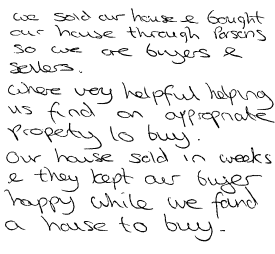 we sold our house & bought
our house through Parsons
so we are buyers &
sellers.
Where very helpful helping
us find an appropriate
propety to buy.
Our house sold in weeks
& they kept our buyer
happy while we found
a house to buy.